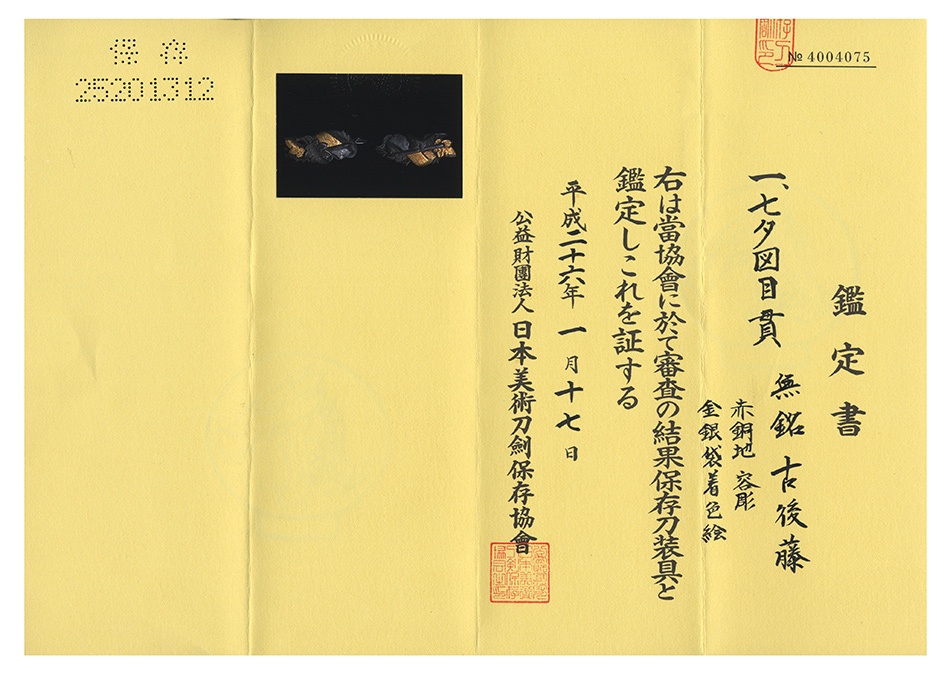 鑑定書
一、七夕図目貫 無銘 古後藤
赤銅地 容彫
金銀袋着色絵
右は當協會に於て審査の結果保存刀装具と
鑑定しこれを証する
平成二十六年一月十七日
公益財團法人 日本美術刀剣保存協會
№ 4004075
保存
25201312